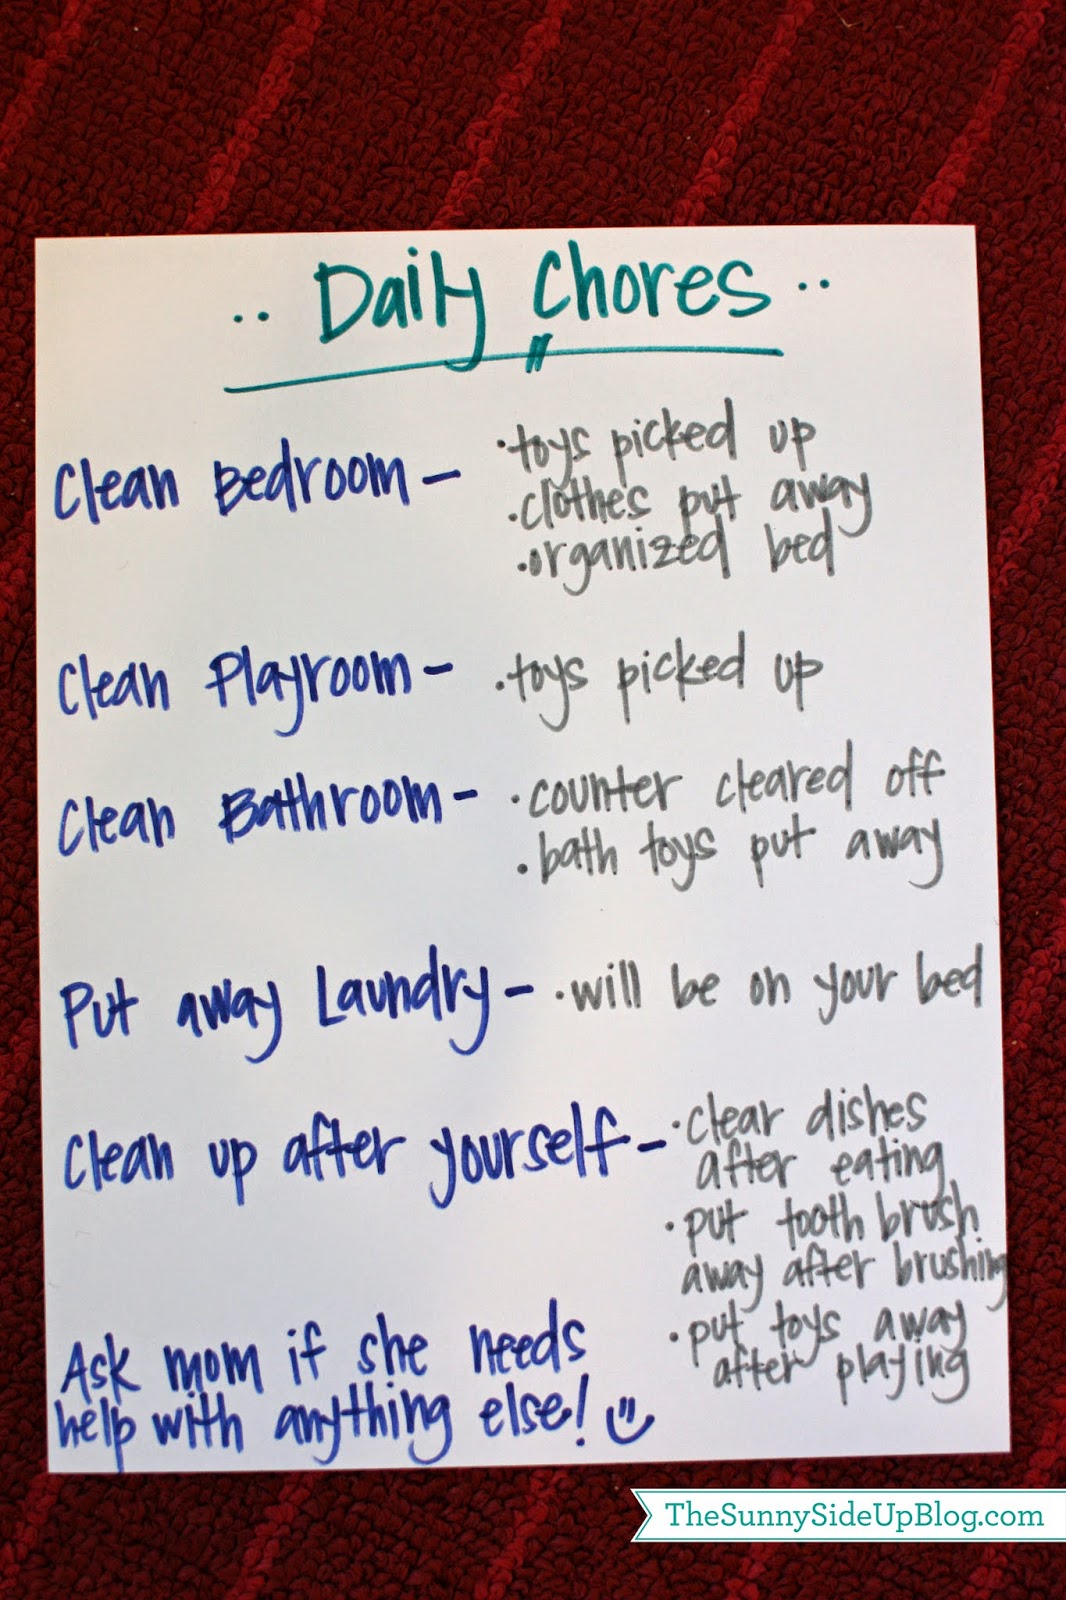 .. Daily Chores ..
Clean Bedroom - • toys picked up
• clothes put away
• organized bed
Clean Playroom - • toys picked up
Clean Bathroom - • counter cleared off
• bath toys put away
Put away Laundry - • will be on your bed
Clean up after yourself - • clear dishes
after eating
• put tooth brush
away after brushing
• put toys away
after playing
Ask mom if she needs
help with anything else!
TheSunnySideUpBlog.com